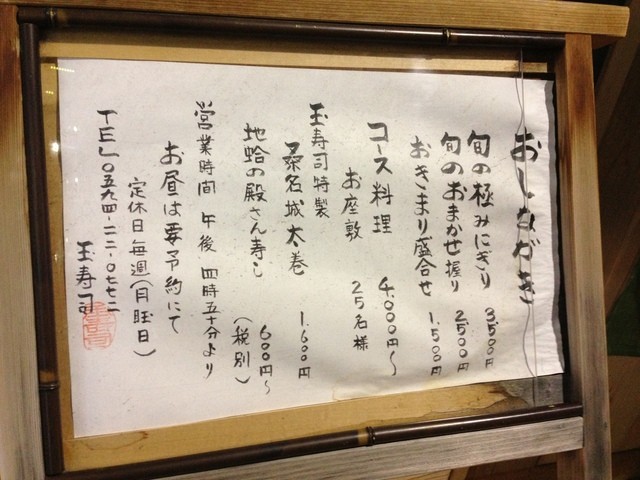 おしながき
旬の極みにぎり 3,500円
旬のおまかせ握り 2,500円
おきまり盛合せ 1,500円
コース料理 4,000円〜
お座敷 25名様
玉寿司特製
桑名城太巻 1,600円
地蛤の殿さん寿し 600円〜
(税別)
営業時間 午後 四時五十分より
お昼は要予約にて
定休日毎週(月曜日)
TEL〇五九四-二二-〇七七二
玉寿司